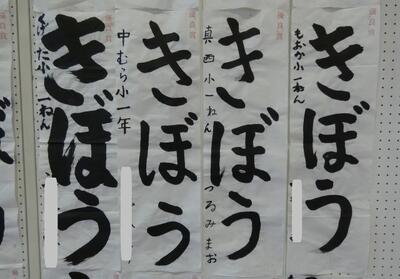 優良賞
きぼう
もおか小一ねん
優良賞
きぼう
真西小一ねん
つるみまお
優良賞
きぼう
中むら小一年
きぼう
た小一ねん